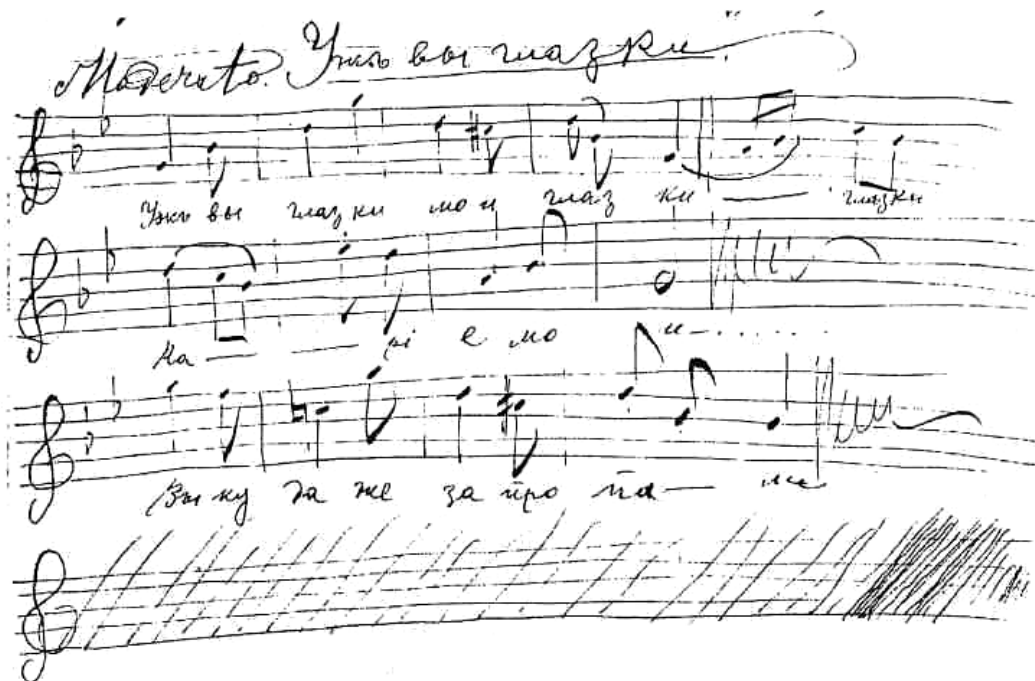 Moderato. Ужъ вы глазки.
Ужъ вы глаз ки мои глаз ки — глазки
Ка — — рі е мо и-.....
Вы ку да же за про па — ли